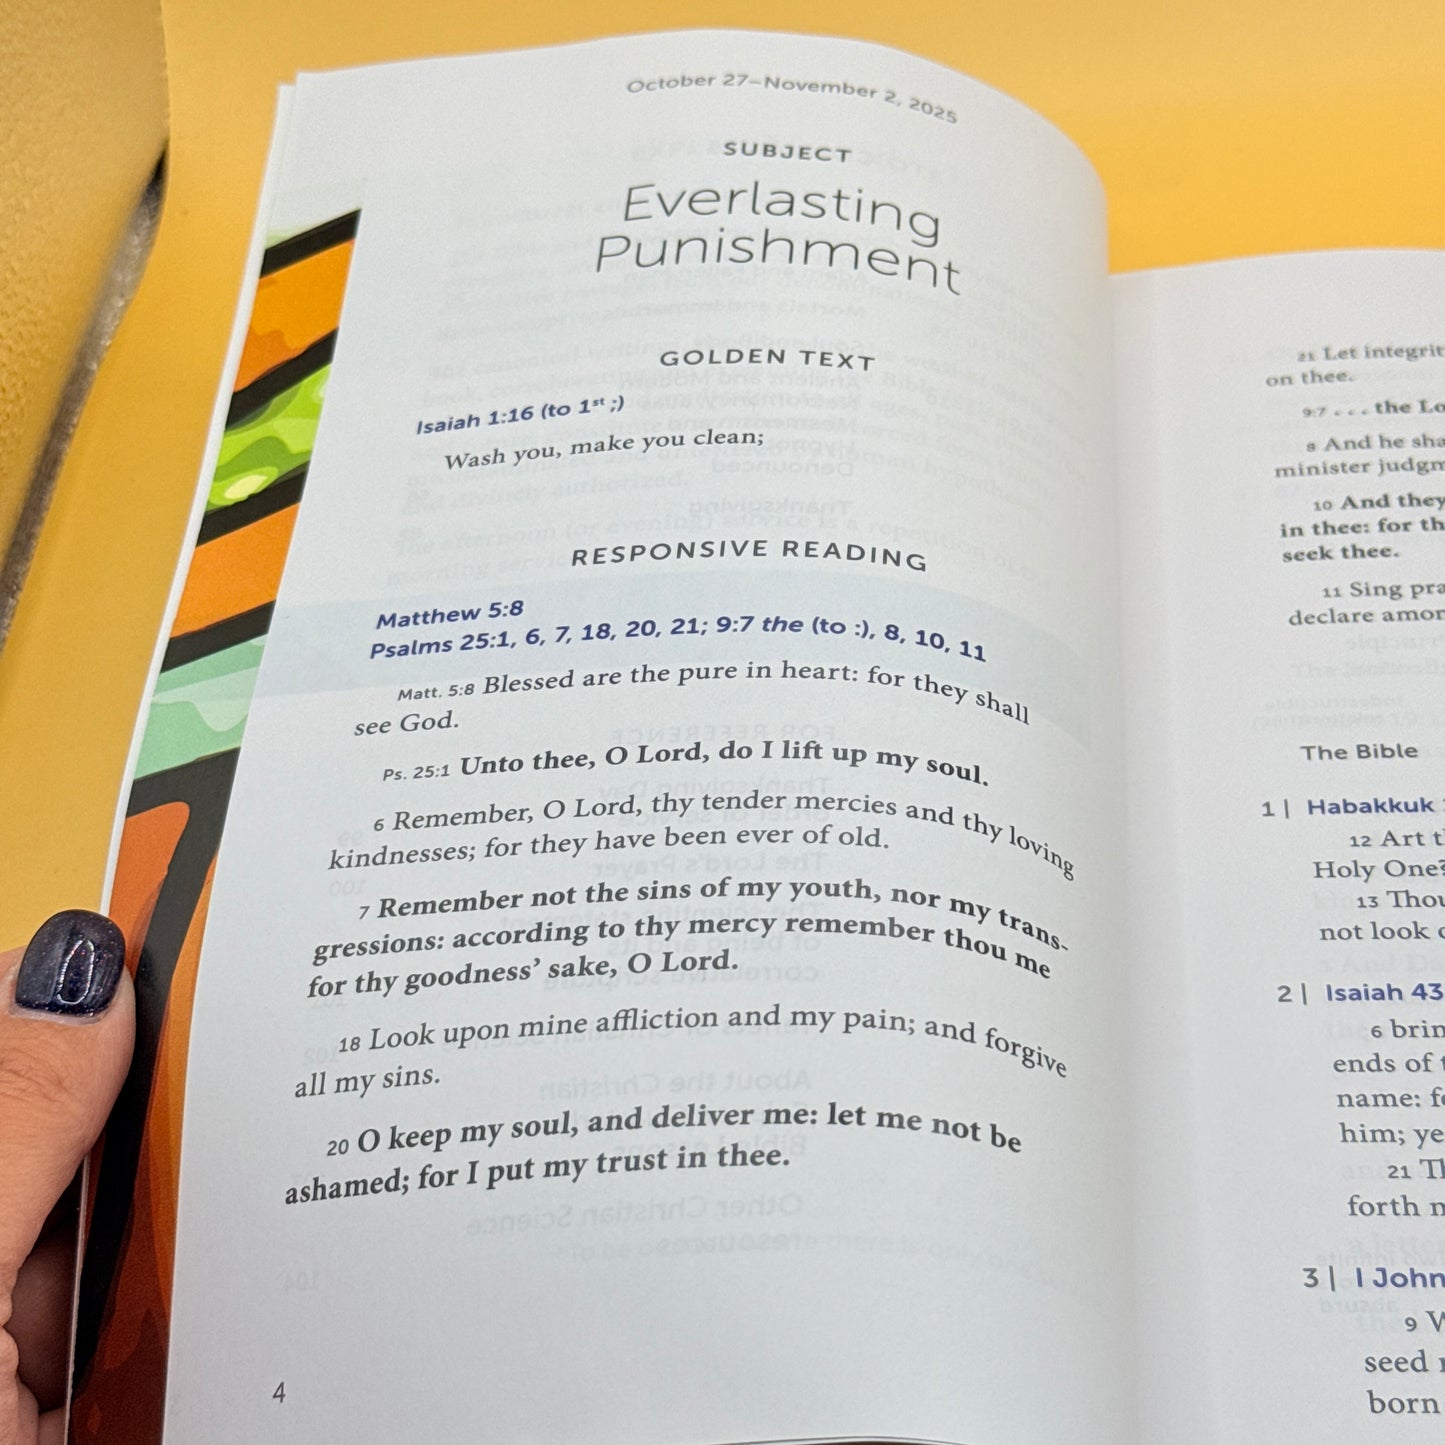 October 27–November 2, 2025
SUBJECT
Everlasting
Punishment
GOLDEN TEXT
Isaiah 1:16 (to 1st ;)
Wash you, make you clean;
RESPONSIVE READING
Matthew 5:8
Psalms 25:1, 6, 7, 18, 20, 21; 9:7 the (to :), 8, 10, 11
Matt. 5:8 Blessed are the pure in heart: for they shall
see God.
Ps. 25:1 Unto thee, O Lord, do I lift up my soul.
6 Remember, O Lord, thy tender mercies and thy loving
kindnesses; for they have been ever of old.
7 Remember not the sins of my youth, nor my trans-
gressions: according to thy mercy remember thou me
for thy goodness’ sake, O Lord.
18 Look upon mine affliction and my pain; and forgive
all my sins.
20 O keep my soul, and deliver me: let me not be
ashamed; for I put my trust in thee.
4
21 Let integrit
on thee.
9:7 . . . the Lo
8 And he sha
minister judgm
10 And they
in thee: for th
seek thee.
11 Sing pra
declare amon
The Bible
1 | Habakkuk
12 Art t
Holy One?
13 Thou
not look o
2 | Isaiah 43
6 brin
ends of t
name: fo
him; ye
21 Th
forth m
3 | I John
9 W
seed
born